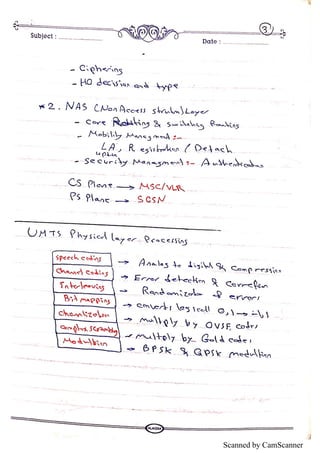 3
Subject :
Date :
- Ciphering
- HO decision and type
* 2. NAS (Non Access stratum) Layer
- Core Routing & Switching Routing
- Mobility Managment :-
LA, Registration / Detach
update
- Security Managment :- Authentication
CS Plane → MSC/VLR
PS Plane → SGSN
UMTS Physical layer Processing
Speech coding → Analog to digital & Compression
Channel coding → Error detection & Correction
Interleaving → Randomization of errors
Bit mapping → convert logical 0,1 → -1,1
channelization → multiply by OVSF codes
Complex Scrambling → multiply by Gold codes
Modulation → BPSK & QPSK modulation
Scanned by CamScanner